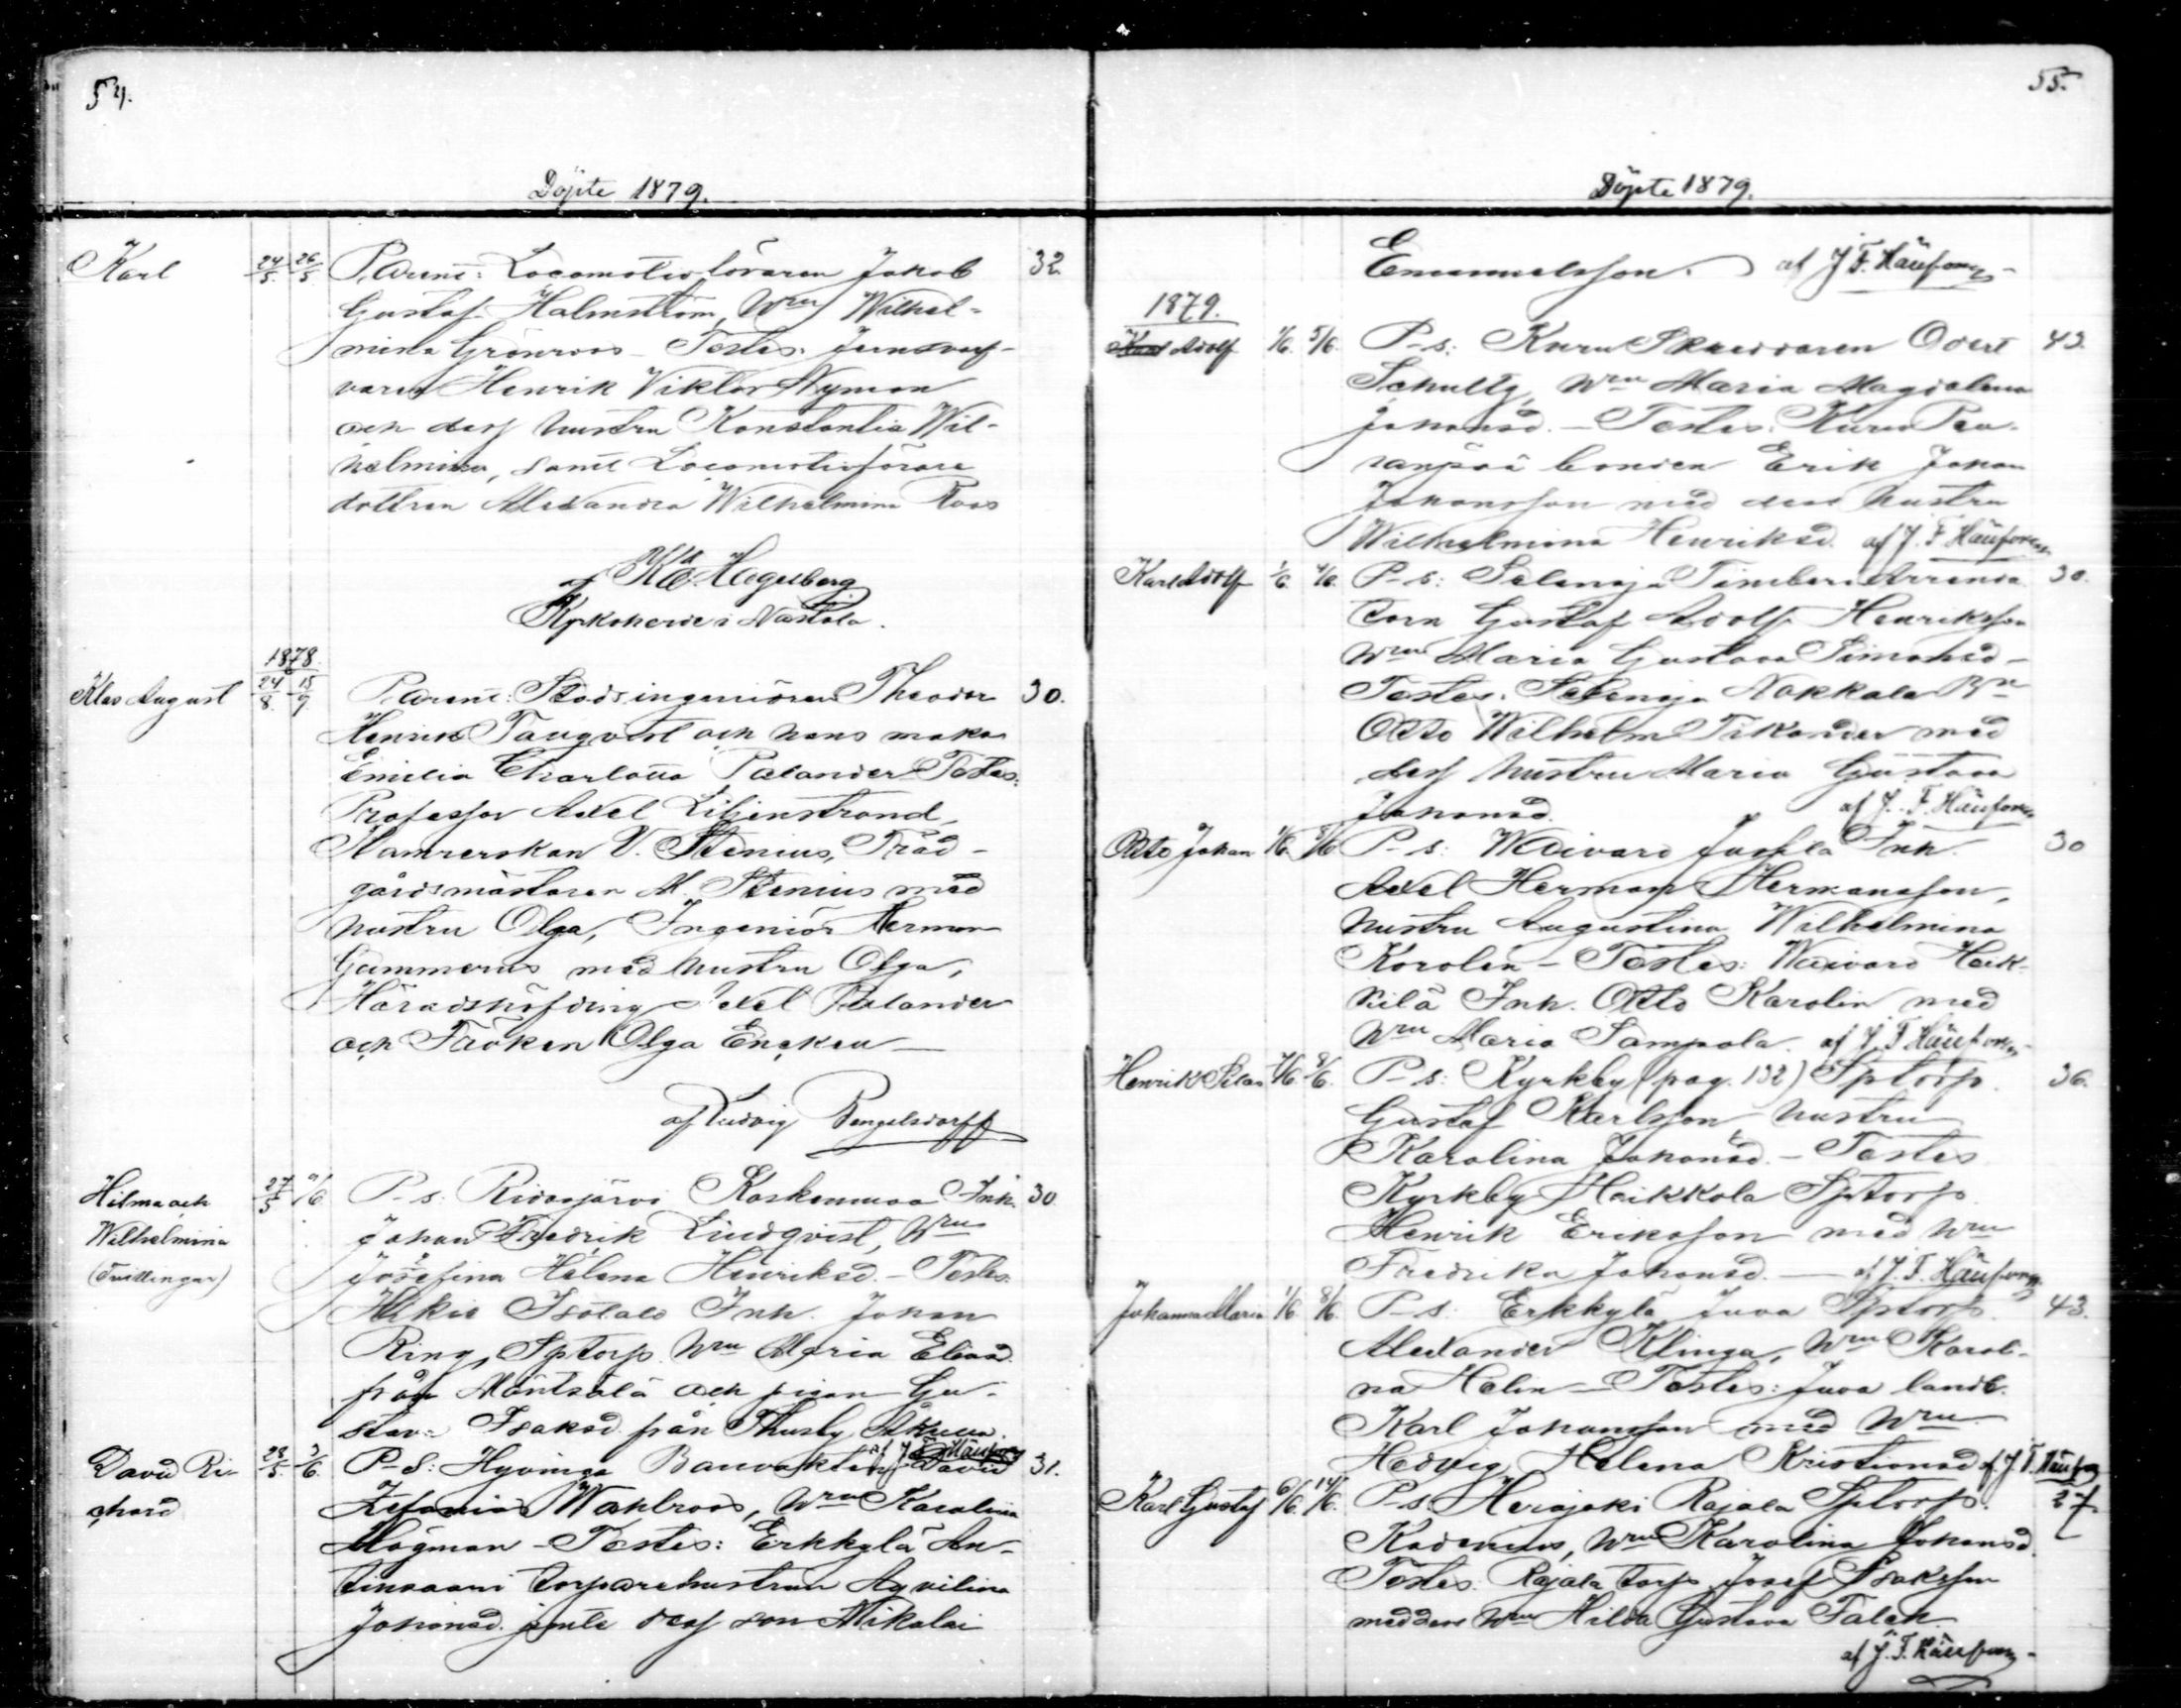 54.
Döpte 1879.
Karl 24/5. 26/5. Parent: Locomotivföraren Jakob 32.
Gustaf Halmström, Hru Wilhel-
mina Grönroos – Testes:
varen Henrik Viktor Nyman
och dess hustru Konstantia Wil-
helmina, samt Locomotivförare
dottren Alexandra Wilhelmina Roos
af K. E. Hagelberg
Kyrkoherde i Nastola.
1878.
Klas August 24/8. 15/9 Parent: Stadsingeniören Theodor 30.
Henrik Tanqvist och hans maka
Emilia Charlotta Palander Testes:
Professor Axel Liljenstrand,
Kamrerskan V. Stenius, Träd-
gårdsmästaren M. Stenius med
hustru Olga, Ingeniör Herman
Gummerus med hustru Olga,
Häradshöfding Axel Palander
och Fröken Olga Enckell —
af Ludvig Pengelsdorff
Hilma och 27/5 1/6 P-s: Ridasjärvi Koskenmaa Inh. 30
Wilhelmina Johan Fredrik Lindqvist, Hru
(Tvillingar) Josefina Helena Henriksd. – Testes:
Isotalo Inh. Johan
Ring, Sptorp. Hru Maria Eliasd.
från Mäntsälä och pigan Gu-
stava Isaksd. från Thusby
af J. F.
David Ri- 28/5. 2/6. P-S: Hyvinge Banvakten David 31.
chard Zefanias Wahlroos, Hru Karolina
Högman – Testes: Erkkylä An-
tinsaari torparehustrun Aqvilina
Johansd. jemte dess son Nikolai
55.
Döpte 1879.
Emanuelsson. af J. F.
1879.
Karl Adolf 1/6. 5/6. P-s: Skräddaren Evert 43.
Schultz, Hru Maria Magdalena
Johansd. – Testes:
bonden Erik Johan
Johansson med dess hustru
Wilhelmina Henriksd. af J. F.
Karl Adolf 1/6. P-s: Sälensjä Arrenda 30.
torn Gustaf Adolf Henriksson
Hru Maria Gustava Simonsd –
Testes: Nokkala Bn
Otto Wilhelm Tikander med
dess hustru Maria Gustava
Johansd. af J. F.
Otto Johan 1/6. 8/6 P-s: Waivaro Jussila Inh. 30
Axel Herman Hermansson,
hustru Augustina Wilhelmina
Karolin – Testes: Waivaro Heik-
kilä Inh. Otto Karolin med
Hru Maria Sampola. af J. F.
Henrik Silas 7/6. 8/6. P-s: Kyrkby (pag. 132) Sptorp. 36.
Gustaf Karlsson hustru
Karolina Johansd. – Testes
Kyrkby Heikkola Sptorp.
Henrik Eriksson med Hru
Fredrika Johansd. — af J. F.
Johanna Maria 1/6. 8/6. P-s. Erkkylä Juva Sptorp. 43.
Alexander Klinga, Hru Karoli-
na Helin – Testes: Juva landb.
Karl Johansson med Hru
Hedvig Helena Kristiansd af J. F.
Karl Gustaf 6/6. 14/6. P-s. Herajoki Rajala Sptorp. 27.
Kadenius, Hru Karolina Johansd.
Testes. Rajala torp. Josef Isaksson
med dess Hru Hilda Gustava Falck
af J. F.